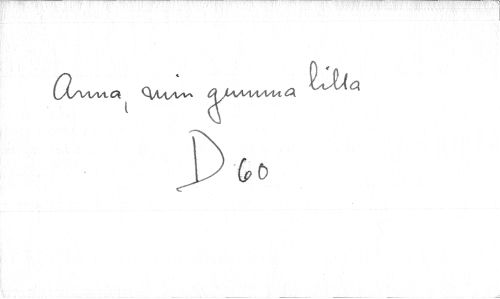 Anna, min gumma lilla
D 60